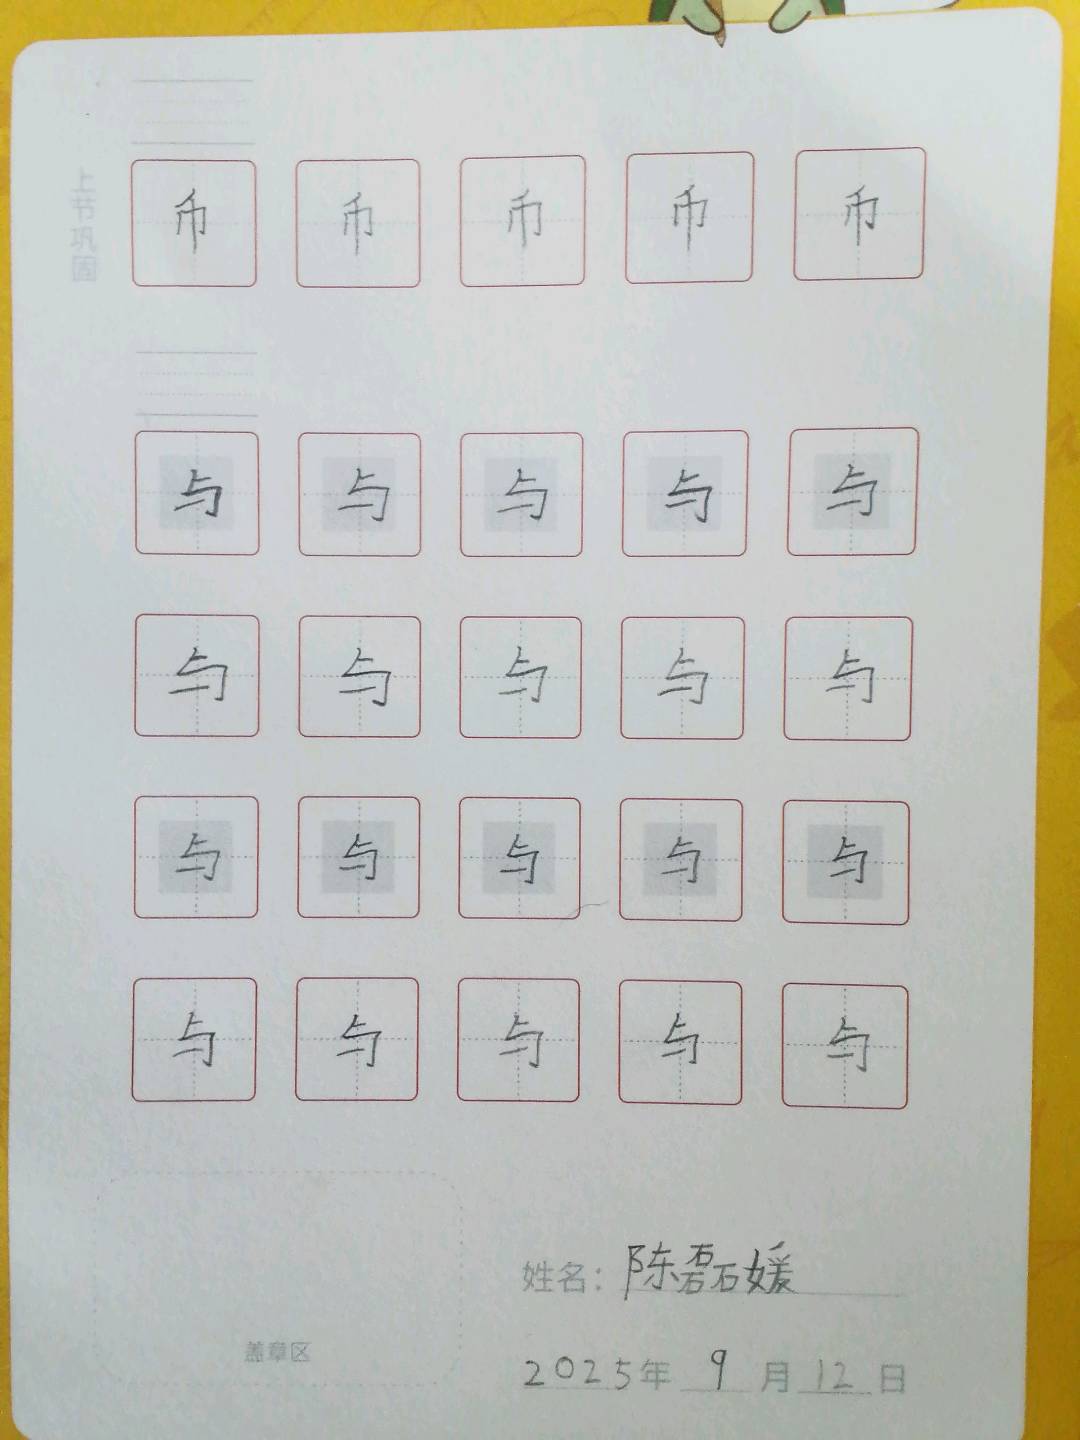 上节巩固
币 币 币 币 币
与 与 与 与 与
与 与 与 与 与
与 与 与 与 与
与 与 与 与 与
姓名：陈磊媛
盖章区
2025年 9 月 12 日